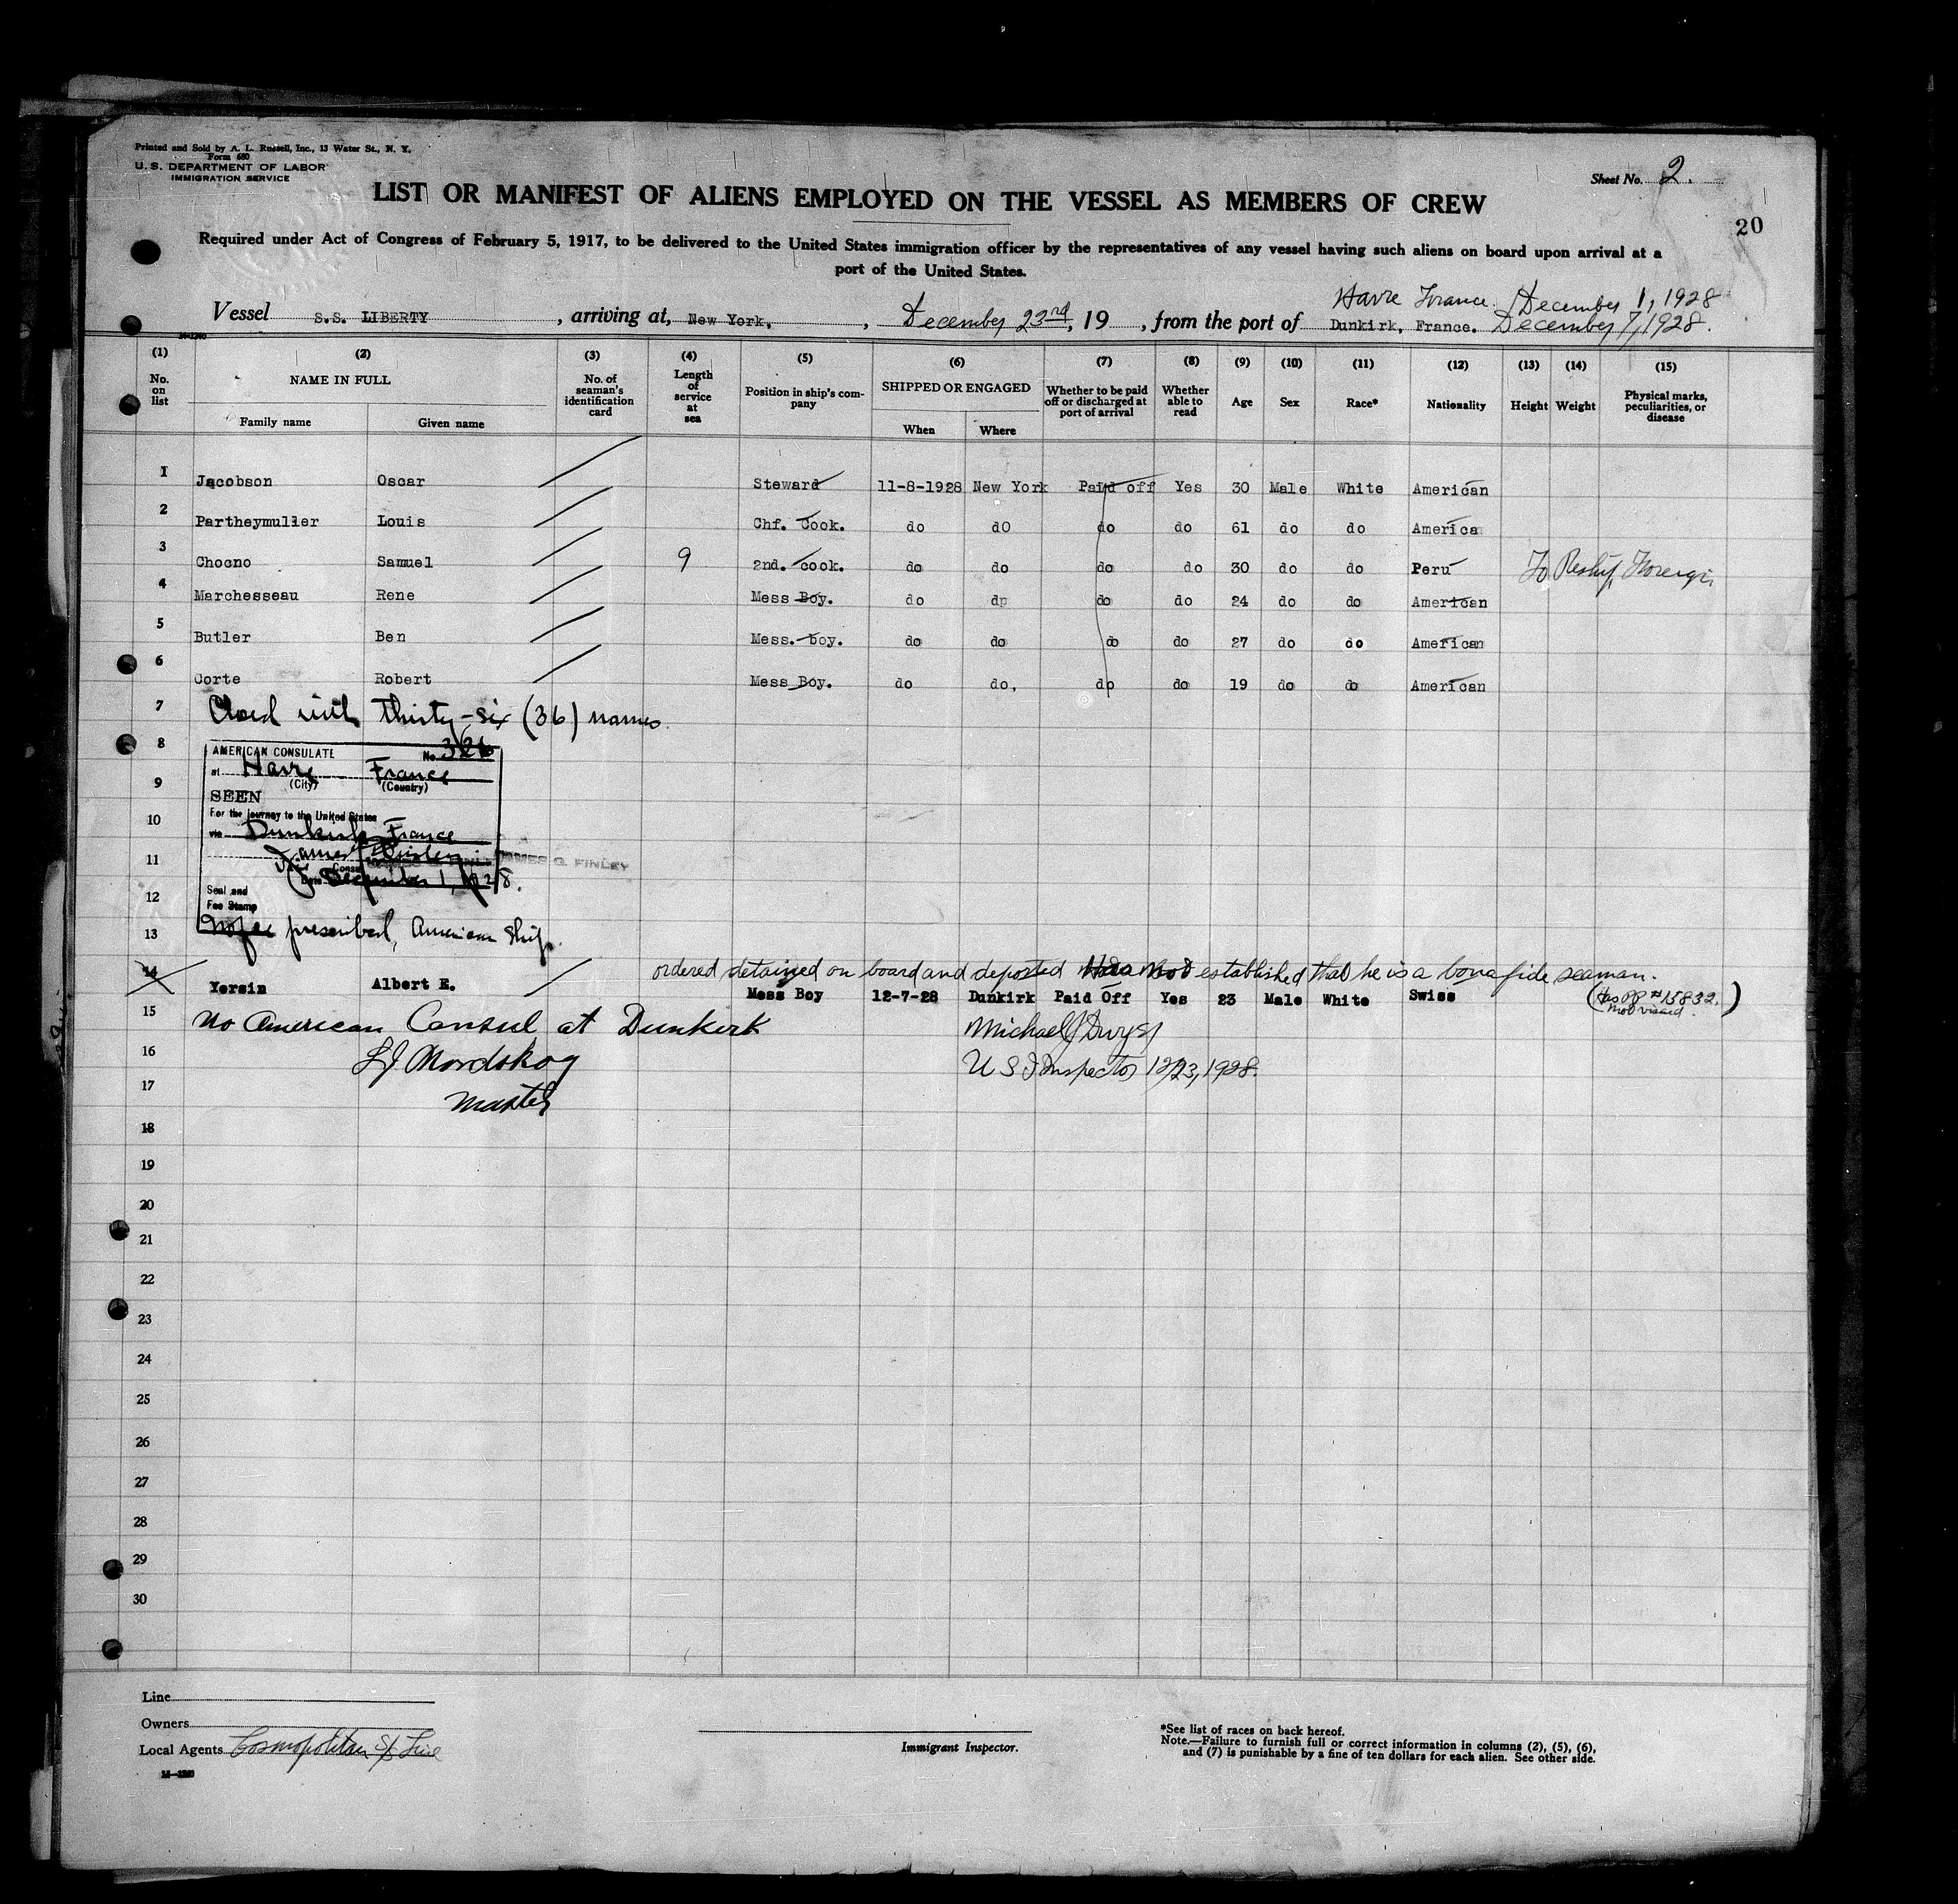 Printed and Sold by A. L. Russell, Inc., 13 Water St., N. Y.
Form 680
U. S. DEPARTMENT OF LABOR
IMMIGRATION SERVICE
Sheet No. 2.
LIST OR MANIFEST OF ALIENS EMPLOYED ON THE VESSEL AS MEMBERS OF CREW
20
Required under Act of Congress of February 5, 1917, to be delivered to the United States immigration officer by the representatives of any vessel having such aliens on board upon arrival at a
port of the United States.
Havre France. December 1, 1928
Vessel S.S. LIBERTY, arriving at, New York, December 23rd, 19 , from the port of Dunkirk, France. December 7, 1928.
(1) (2) (3) (4) (5) (6) (7) (8) (9) (10) (11) (12) (13) (14) (15)
No. on list NAME IN FULL Family name Given name No. of seaman's identification card Length of service at sea Position in ship's company SHIPPED OR ENGAGED When Where Whether to be paid off or discharged at port of arrival Whether able to read Age Sex Race* Nationality Height Weight Physical marks, peculiarities, or disease
1 Jacobson Oscar Steward 11-8-1928 New York Paid off Yes 30 Male White American
2 Partheymuller Louis Chf. Cook. do dO do do 61 do do America
3 Chocno Samuel 9 2nd. cook. do do do do 30 do do Peru To Reship Foreign
4 Marchesseau Rene Mess Boy. do do do do 24 do do American
5 Butler Ben Mess. boy. do do do do 27 do do American
6 Corte Robert Mess Boy. do do, do do 19 do do American
7 Closed with thirty-six (36) names.
8 AMERICAN CONSULATE No. 326
at Havre France
9 (City) (Country)
SEEN
10 For the journey to the United States
via Dunkirk, France
11 JAMES G. FINLEY
December 1, 1928.
12 Seal and
Fee Stamp
13 No fee prescribed, American Ship.
14 ordered detained on board and deported Has not established that he is a bona fide seaman.
Yersin Albert E. Mess Boy 12-7-28 Dunkirk Paid Off Yes 23 Male White Swiss (Has PP #15832. not visaed.)
15 No American Consul at Dunkirk Michael J Dwyer
16 LJ Nordskog U S I Inspector 12/23, 1928.
17 Master
18
19
20
21
22
23
24
25
26
27
28
29
30
Line
Owners
Local Agents Cosmopolitan S/S Line
Immigrant Inspector.
*See list of races on back hereof.
Note.—Failure to furnish full or correct information in columns (2), (5), (6),
and (7) is punishable by a fine of ten dollars for each alien. See other side.